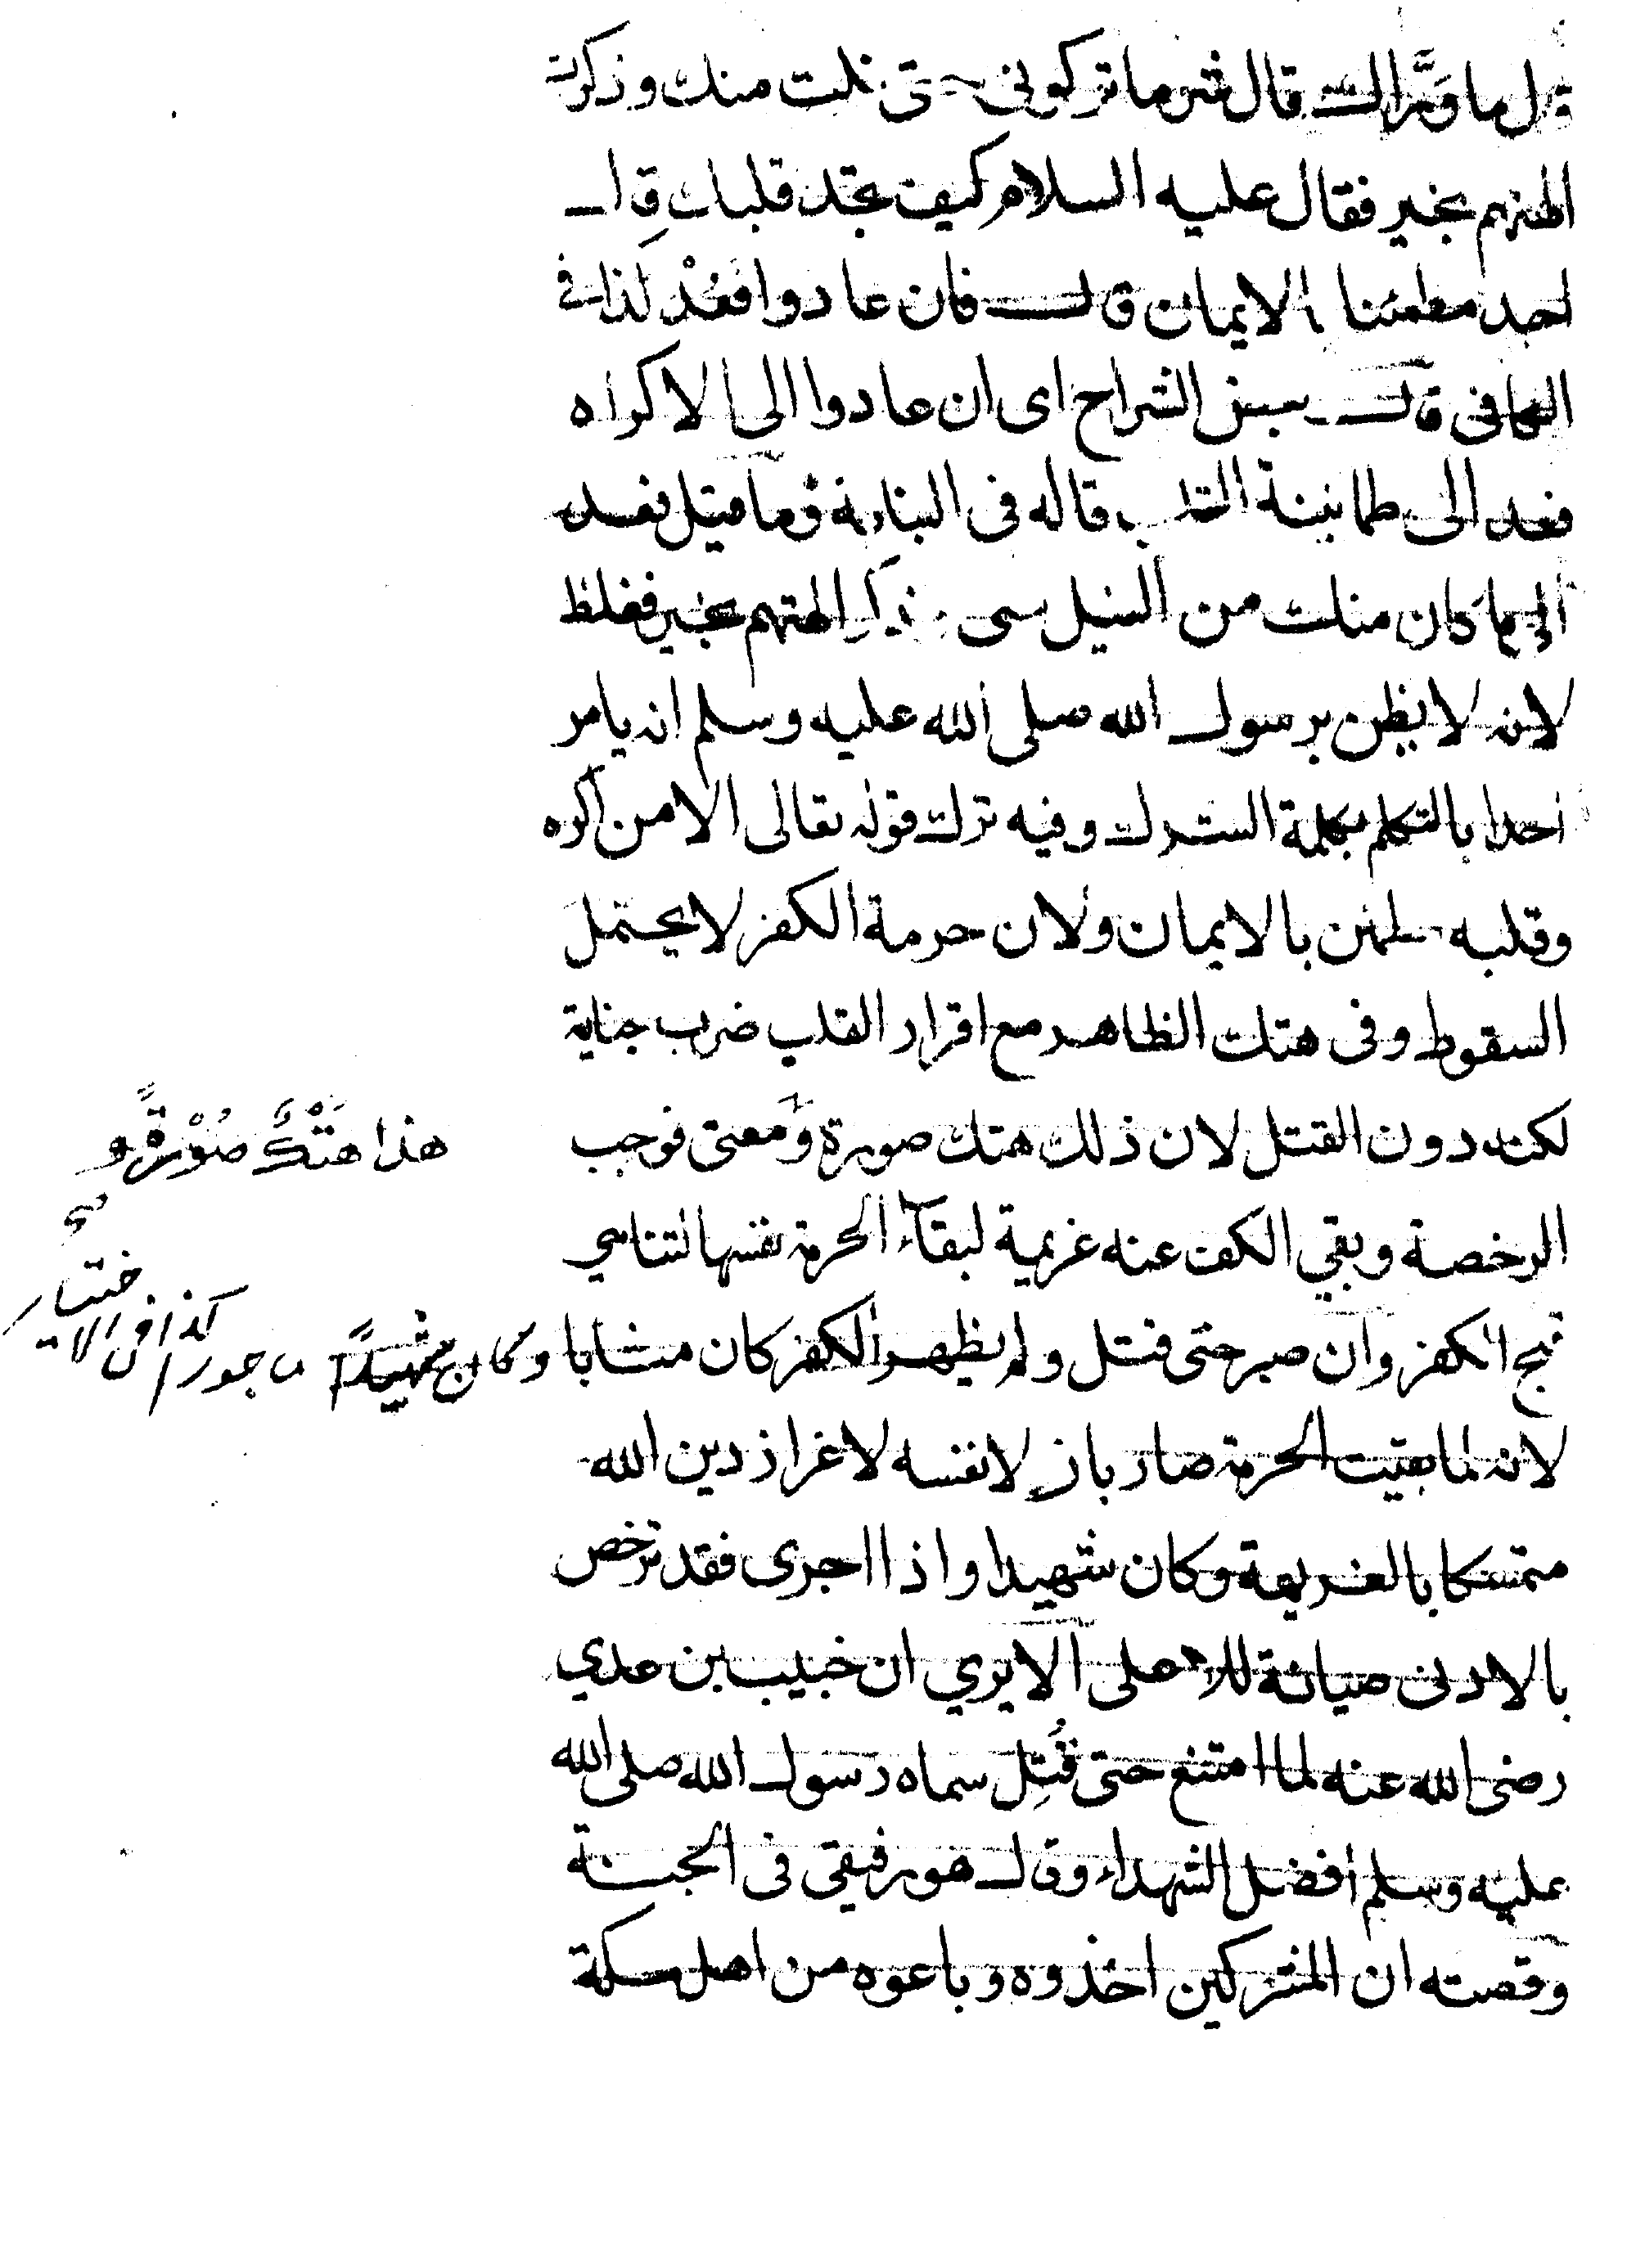 قال ما وراك قال شر ما تركوني حتى نلت منك وذكرت
الهتهم بخير فقال عليه السلام كيف تجد قلبك قال
اجد مطمئنا بالايمان قال فان عادوا فعُدْ كذا في
الكافى قال بعض الشراح اى ان عادوا الى الاكراه
فعد الى طمانينة القلب قاله فى البناية وما قيل فعد
الى ما كان منك من النيل منى وذكر الهتهم بخير فغلط
لانه لا يظن برسول الله صلى الله عليه وسلم انه يامر
احدا بالتكلم بكلمة الشرك وفيه نزل قوله تعالى الا من اكره
وقلبه مطمئن بالايمان ولان حرمة الكفر لا يحتمل
السقوط وفى هتك الظاهر مع اقرار القلب ضرب جناية
لكنه دون القتل لان ذلك هتك صورة ومعنى فوجب
هذا هَتْكٌ صُوْرةً و
الرخصة وبقي الكف عنه عزيمة لبقآء الحرمة نفسها لتناهي
قبح الكفر وان صبر حتى قتل ولم يظهر الكفر كان مثابا وكان شهيداً ماجورا كذا فى الاختيار
لانه لما بقيت الحرمة صار باذلا نفسه لاعزاز دين الله
متمسكا بالعزيمة وكان شهيدا واذا اجرى فقد ترخص
بالادنى صيانة للاعلى الا يري ان خبيب بن عدي
رضى الله عنه لما امتنع حتى قُتِل سماه رسول الله صلى الله
عليه وسلم افضل الشهداء وقال هو رفيقى فى الجنة
وقصته ان المشركين اخذوه وباعوه من اهل مكة